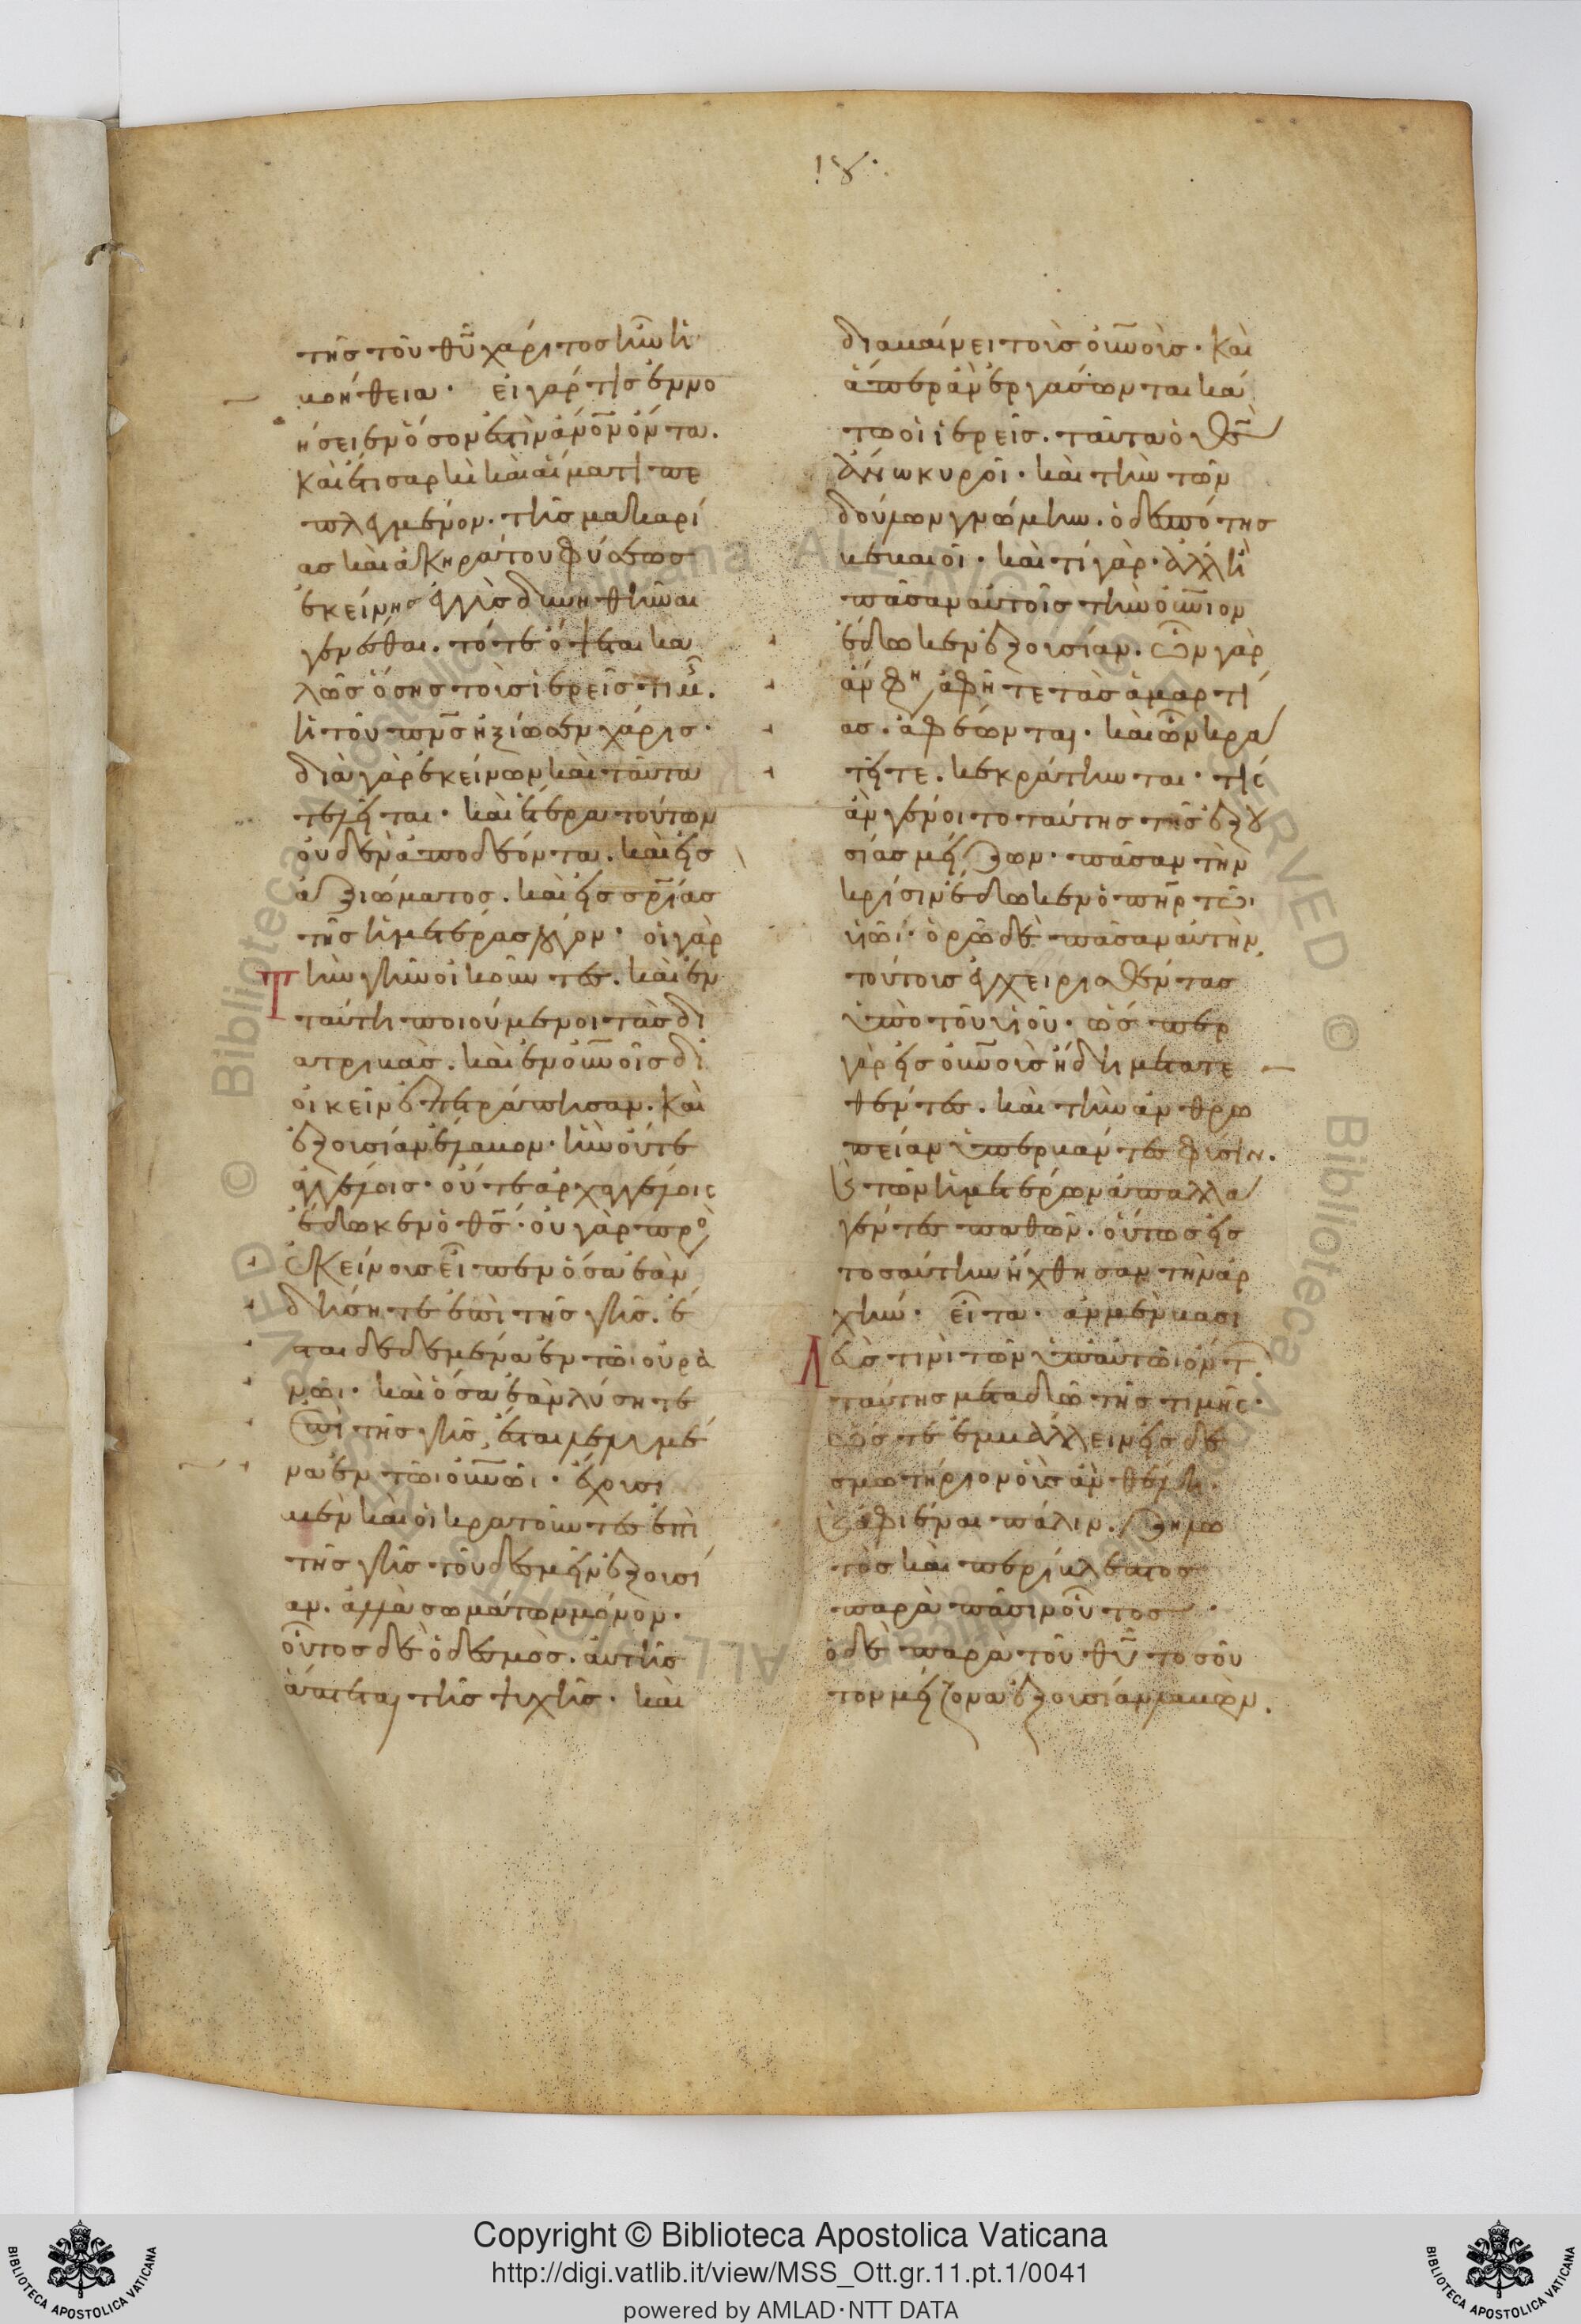 18·
τῆς τοῦ θῦ χάριτος ἦν ἡ
βοήθεια· εἰ γάρ τις ἐννο
ήσειεν ὅσον ἐστὶν ἄνον ὄντα.
καὶ ἔτι σαρκὶ καὶ αἵματι πε
πλεγμένον. τῆς μακαρί
ας καὶ ἀκηράτου φύσεως
ἐκείνης ἐγγὺς δυνηθῆναι
γενέσθαι. τότε ὄψεται κα
λῶς ὅσης τοὺς ἱερεῖς τιμῆς.
ἡ τοῦ πνς ἠξίωσεν χάρις·
διὰ γὰρ ἐκείνων καὶ ταῦτα
τελεῖται· καὶ ἕτερα τούτων
οὐδὲν ἀποδέοντα. καὶ εἰς
ἀξιώματος. καὶ εἰς σρίας
τῆς ἡμετέρας λόγον· οἱ γὰρ
Τὴν γῆν οἰκοῦντες. καὶ ἐν
ταύτη ποιούμενοι τὰς δι
ατριβὰς. καὶ ἐν οὐνοῖς δι
οικεῖν ἐπετράπησαν. καὶ
ἐξουσίαν ἔλαβον· ἣν οὔτε
ἀγγέλοις· οὔτε ἀρχαγγέλοις
ἔδωκεν ὁ θς· οὐ γὰρ πρὸ
ἐκείνους εἶπεν ὅσα ἐὰν
δήσητε ἐπὶ τῆς γῆς. ἔ
σται δεδεμένα ἐν τῶι οὐρα
νῶι· καὶ ὅσα ἐὰν λύσητε
ἐπὶ τῆς γῆς, ἔσται λελυμέ
να ἐν τῶι οὐνῶι· ἔχουσι
μὲν καὶ οἱ κρατοῦντες ἐπὶ
τῆς γῆς τοῦ δεσμεῖν ἐξουσί
αν. ἀλλὰ σωμάτων μόνον.
οὗτος δὲ ὁ δεσμὸς. αὐτῆς
ἅπτεται τῆς ψυχῆς· καὶ
διαβαίνει τοὺς οὐνοὺς. καὶ
ἅπερ ἂν ἐργάσωνται κά
τω οἱ ἱερεῖς. ταῦτα ὁ θς
ἄνω κυροῖ· καὶ τὴν τῶν
δούλων γνώμην. ὁ δεσπότης
βεβαιοῖ· καὶ τί γὰρ ἀλλ' ἢ
πᾶσαν αὐτοῖς τὴν οὐνιον
ἔδωκεν ἐξουσίαν. ὧν γὰρ
ἄν φη ἀφῆτε τὰς ἁμαρτί
ας. ἀφέωνται· καὶ ὧν κρα
τῆτε. κεκράτηνται· τίς
ἂν γένοιτο ταύτης τῆς ἐξου
σίας μείζων· πᾶσαν τὴν
κρίσιν ἔδωκεν ὁ πηρ τῶι
υἱῶι· ὁρῶ δὲ πᾶσαν αὐτὴν
τούτοις ἐγχειρισθέντας
ὑπὸ τοῦ υἱοῦ· ὥσπερ
γὰρ εἰς οὐνοὺς ἤδη μετατε
θέντες. καὶ τὴν ἀνθρω
πείαν ὑπερβάντες φύσιν.
καὶ τῶν ἡμετέρων ἀπαλλα
γέντες παθῶν. οὕτως εἰς
τοσαύτην ἤχθησαν τὴν ἀρ
χήν· εἶτα· ἂν μὲν βασι
Λεύς τινι τῶν ὑπ' αὐτῶι ὄντ
ταύτης μεταδῶ τῆς τιμῆς·
ὥστε ἐμβάλλειν εἰς δε
σμωτήριον οὓς ἂν θέλη.
καὶ ἀφιέναι πάλιν. ζηλω
τὸς καὶ περίβλεπτος
παρὰ πᾶσιν οὗτος·
ὁ δὲ παρὰ τοῦ θῦ τοσοῦ
τον μείζονα ἐξουσίαν λαβὼν.
Copyright © Biblioteca Apostolica Vaticana
http://digi.vatlib.it/view/MSS_Ott.gr.11.pt.1/0041
powered by AMLAD·NTT DATA
BIBLIOTECA APOSTOLICA VATICANA
BIBLIOTECA APOSTOLICA VATICANA